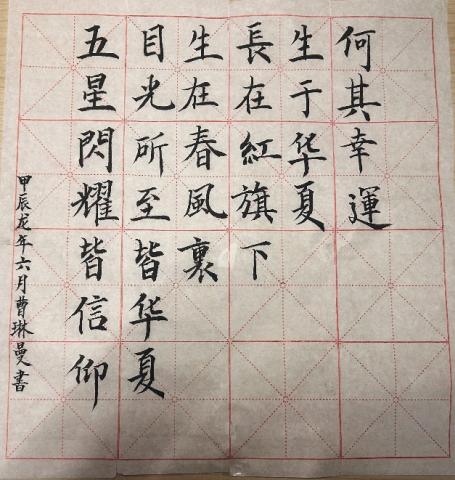 何其幸運
生于华夏
長在紅旗下
生在春風裏
目光所至皆华夏
五星閃耀皆信仰
甲辰龙年六月曹琳曼書